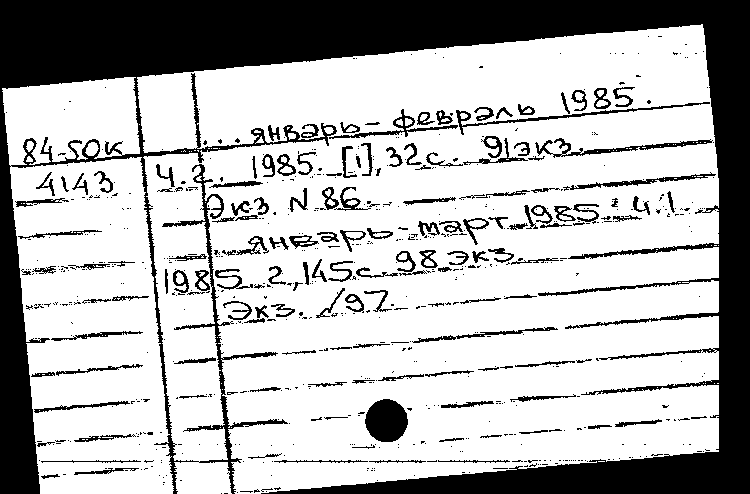 ... январь-февраль 1985.
84-50к
4143 Ч.2. 1985. [1], 32с. 91экз.
Экз. N 86.
январь-март 1985: Ч.1.
1985 2, 145с. 98 экз.
Экз. /97.